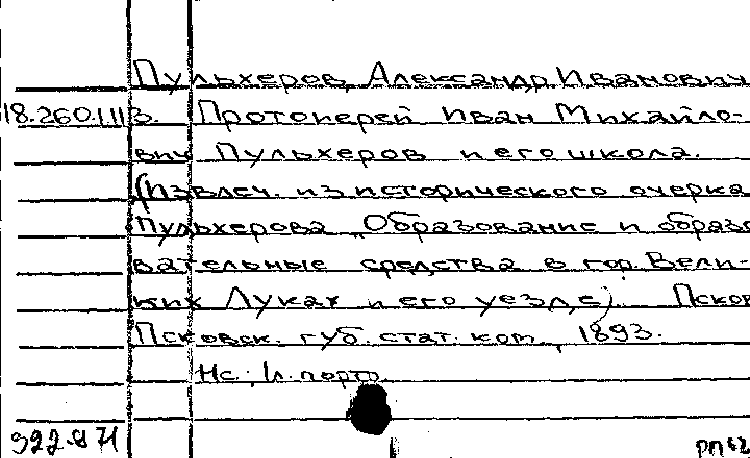 Пульхеров, Александр Иванович
18.260.1.113. Протоиерей Иван Михайло-
вич Пульхеров и его школа.
(Извлеч. из исторического очерка
Пульхерова „Образование и образо
вательные средства в гор. Вели-
ких Луках и его уезде). Псков
Псковск. губ. стат. ком., 1893.
Нс.; 1 л. портр.
922.871